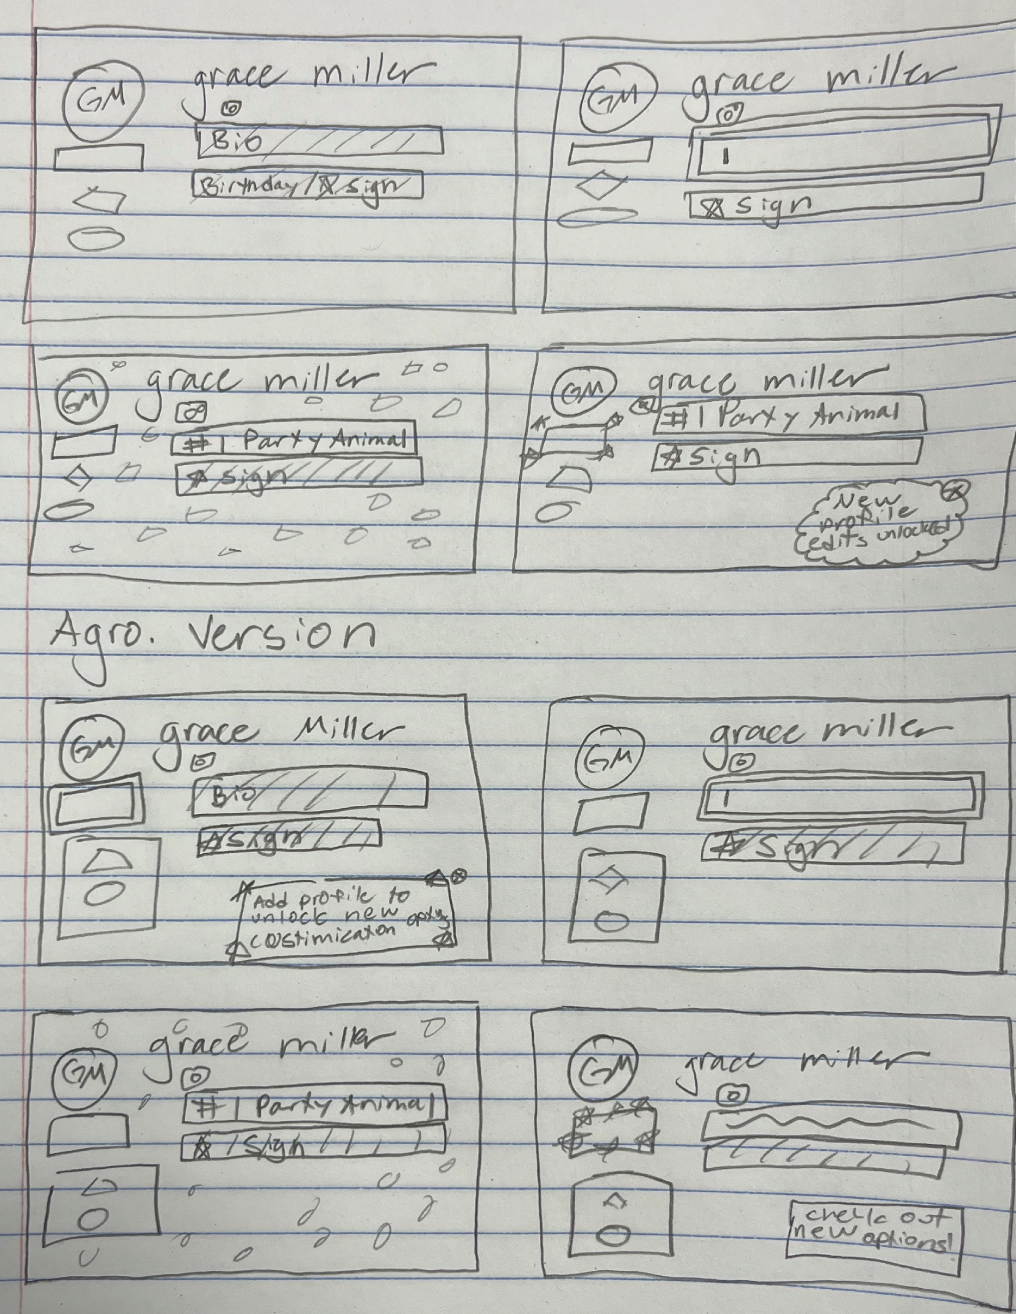 GM
grace miller
Bio
Birthday/☆ sign
GM
grace miller
☆ sign
GM
grace miller
#1 Party Animal
☆ sign
GM
grace miller
#1 Party Animal
☆ sign
New
profile
edits unlocked!
Agro. version
GM
grace Miller
Bio
☆ sign
Add profile to
unlock new
costimication
GM
grace miller
☆ sign
GM
grace miller
#1 Party Animal
☆ sign
GM
grace miller
check out
new options!